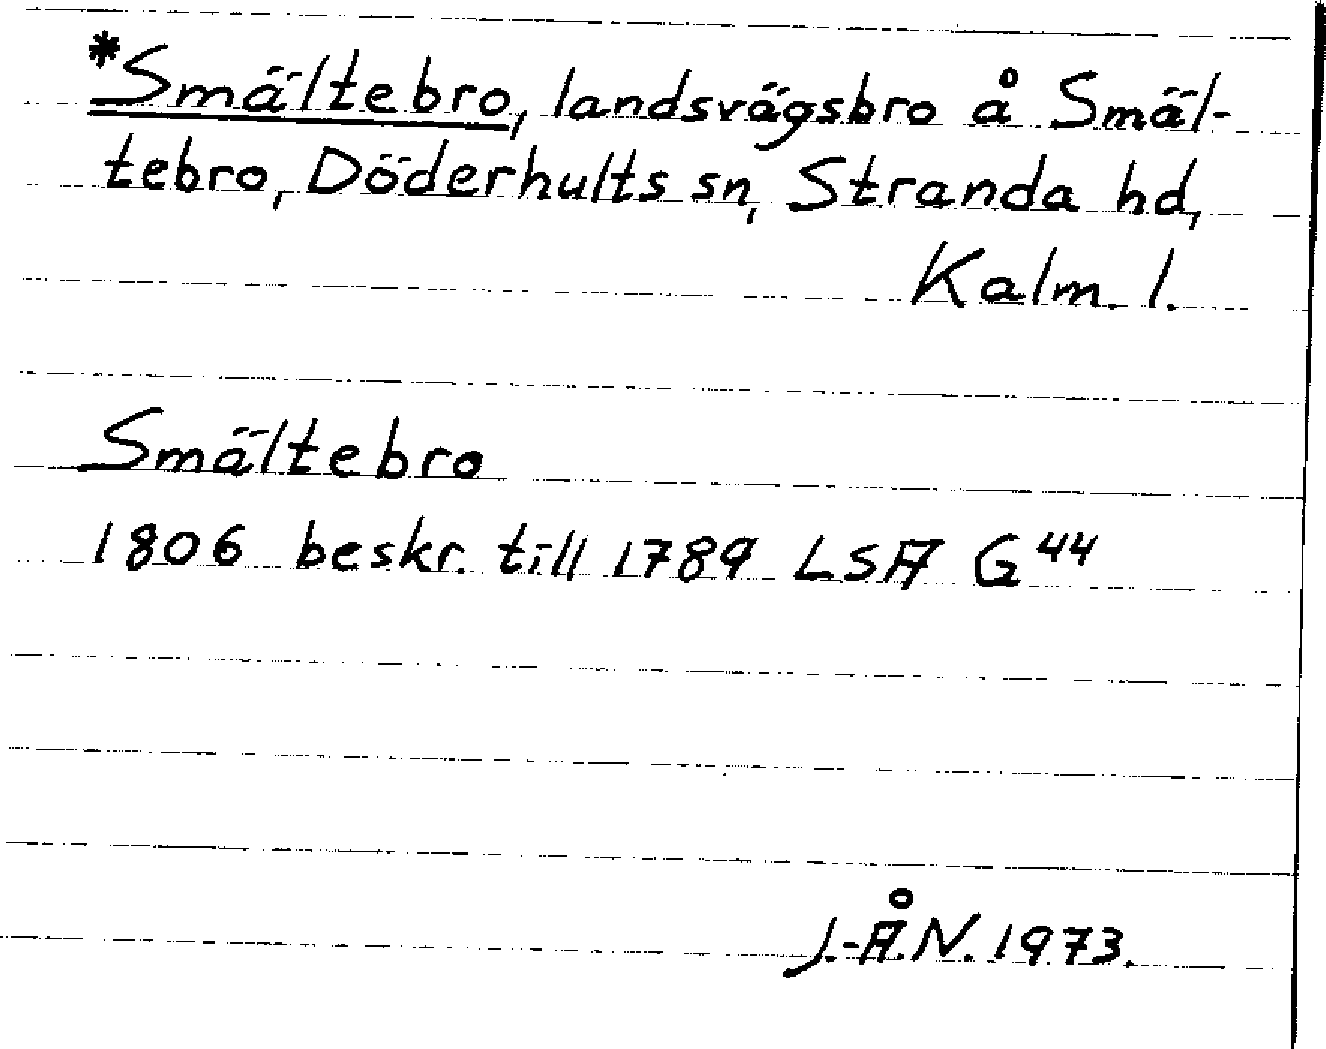 *Smältebro, landsvägsbro å Smäl-
tebro, Döderhults sn, Stranda hd,
Kalm. l.
Smältebro
1806 beskr. till 1789 LSA G44
J.-Å.N. 1973.